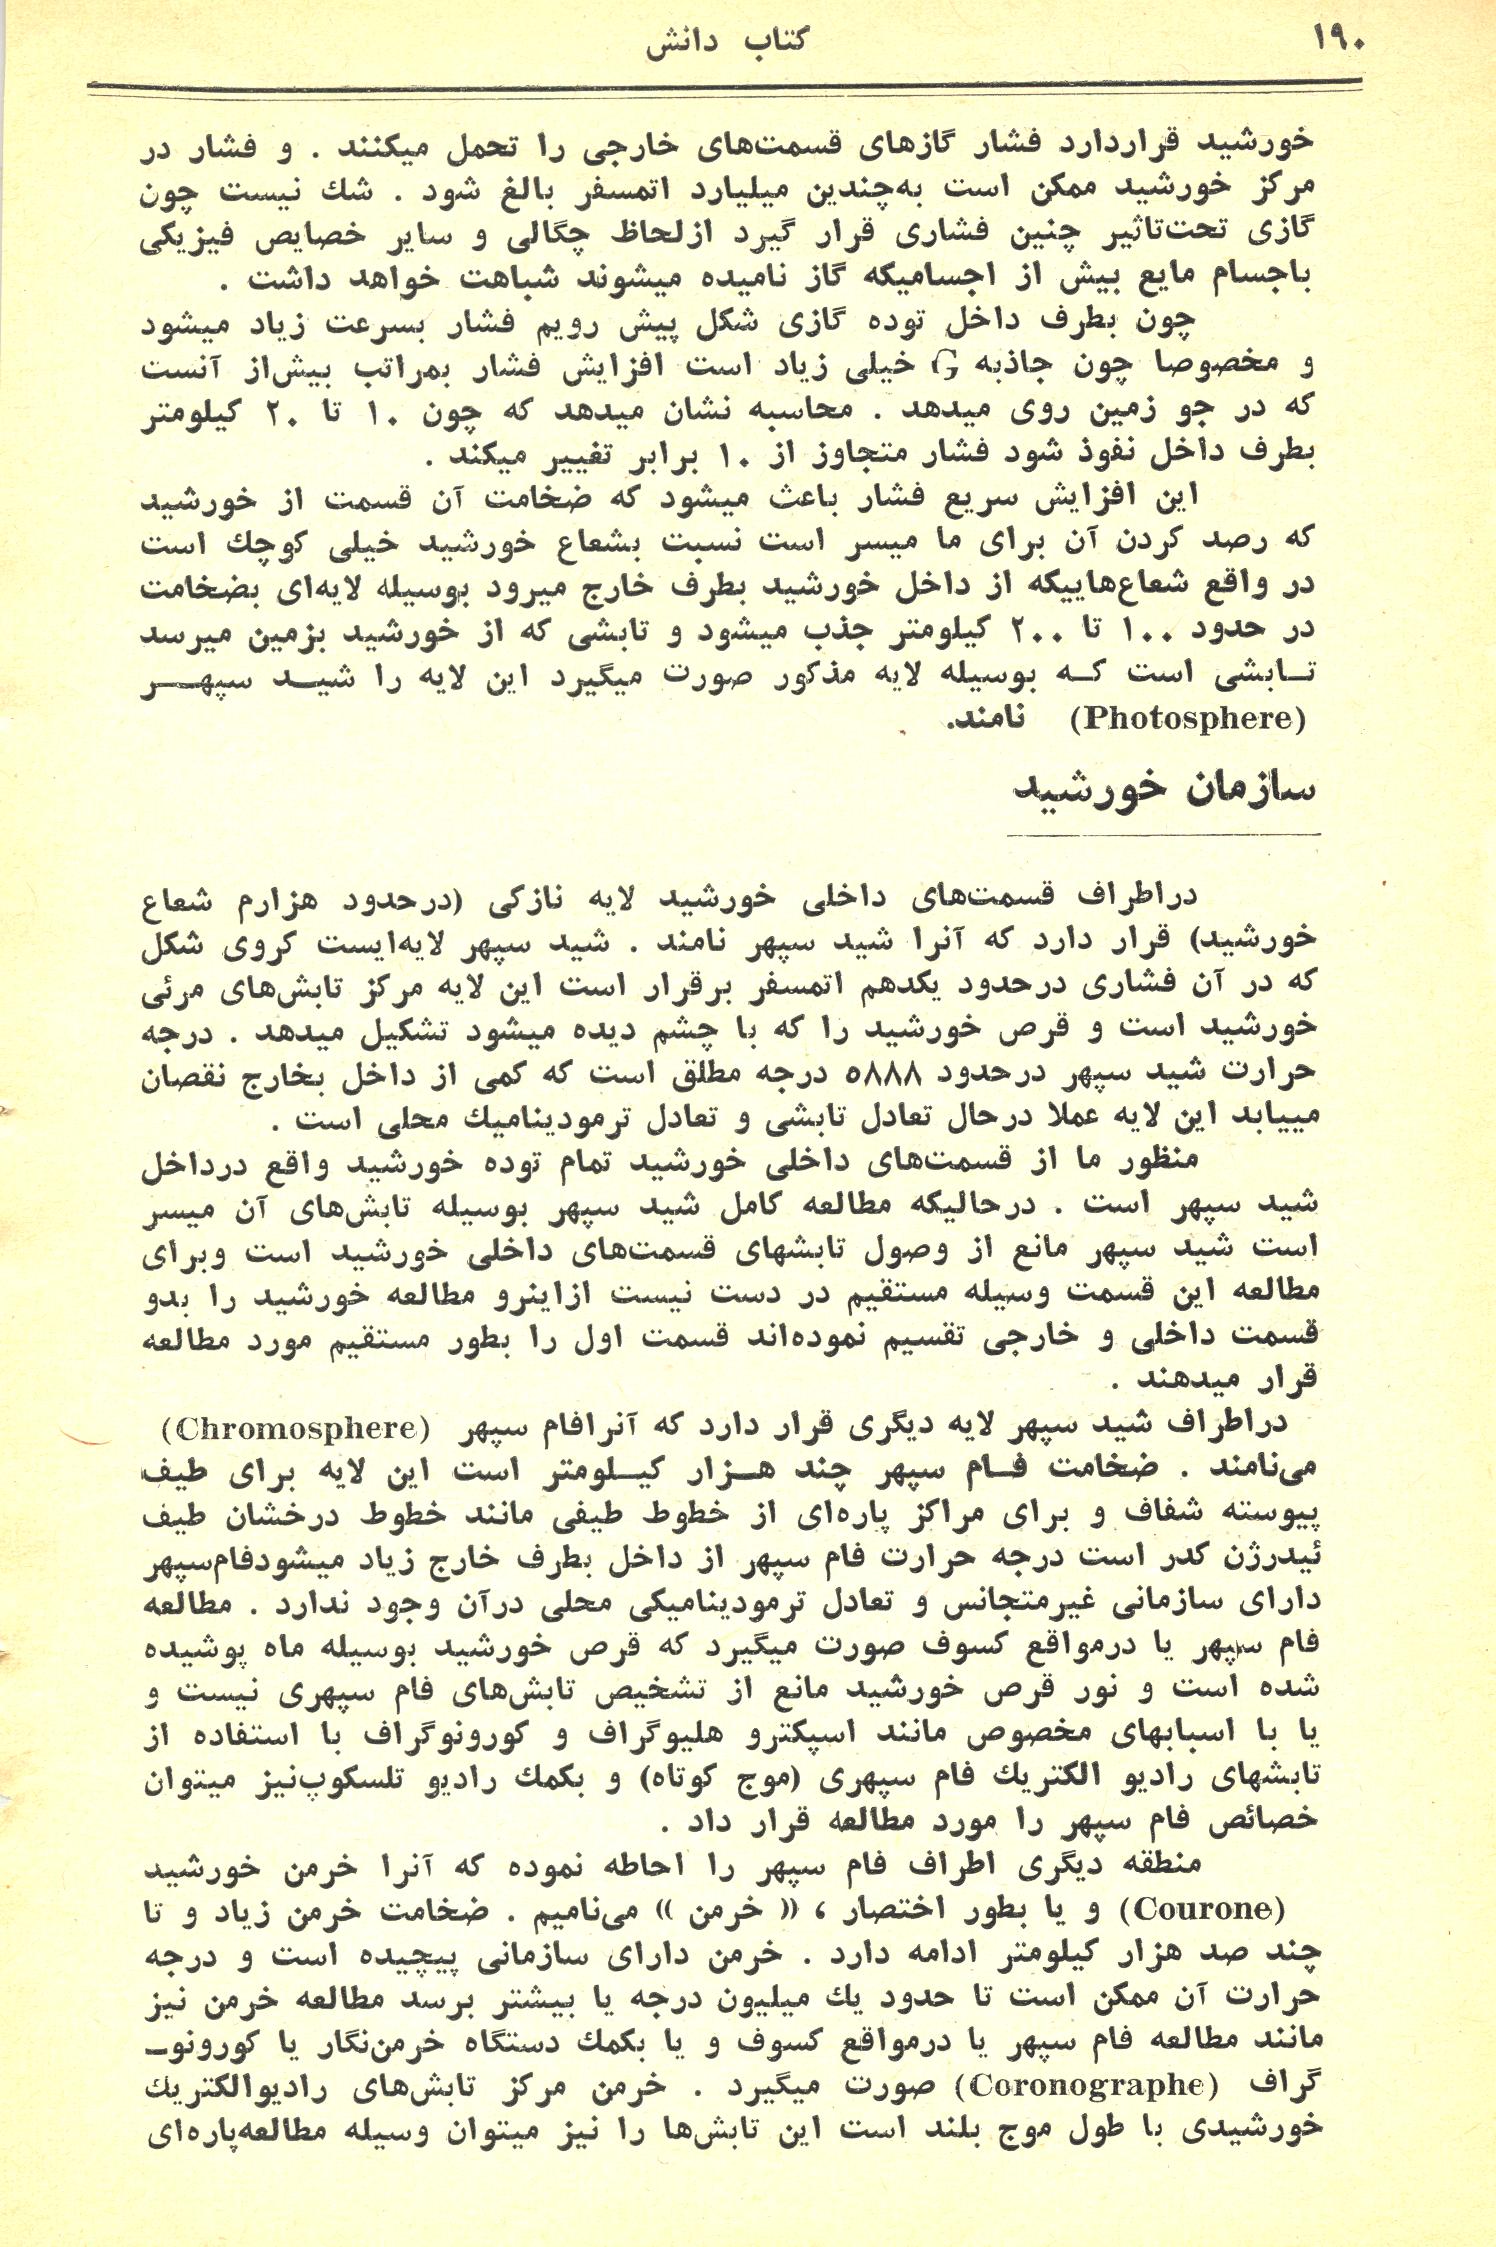 ۱۹۰
کتاب دانش
خورشید قراردارد فشار گازهای قسمت‌های خارجی را تحمل میکنند . و فشار در
مرکز خورشید ممکن است به‌چندین میلیارد اتمسفر بالغ شود . شك نیست چون
گازی تحت‌تاثیر چنین فشاری قرار گیرد ازلحاظ چگالی و سایر خصایص فیزیکی
باجسام مایع بیش از اجسامیکه گاز نامیده میشوند شباهت خواهد داشت .
چون بطرف داخل توده گازی شکل پیش رویم فشار بسرعت زیاد میشود
و مخصوصا چون جاذبه G خیلی زیاد است افزایش فشار بمراتب بیش‌از آنست
که در جو زمین روی میدهد . محاسبه نشان میدهد که چون ۱۰ تا ۲۰ کیلومتر
بطرف داخل نفوذ شود فشار متجاوز از ۱۰ برابر تغییر میکند .
این افزایش سریع فشار باعث میشود که ضخامت آن قسمت از خورشید
که رصد کردن آن برای ما میسر است نسبت بشعاع خورشید خیلی کوچك است
در واقع شعاع‌هاییکه از داخل خورشید بطرف خارج میرود بوسیله لایه‌ای بضخامت
در حدود ۱۰۰ تا ۲۰۰ کیلومتر جذب میشود و تابشی که از خورشید بزمین میرسد
تـابشی است کـه بوسیله لایه مذکور صورت میگیرد این لایه را شیـد سپهـر
(Photosphere) نامند.
سازمان خورشید
دراطراف قسمت‌های داخلی خورشید لایه نازکی (درحدود هزارم شعاع
خورشید) قرار دارد که آنرا شید سپهر نامند . شید سپهر لایه‌ایست کروی شکل
که در آن فشاری درحدود یکدهم اتمسفر برقرار است این لایه مرکز تابش‌های مرئی
خورشید است و قرص خورشید را که با چشم دیده میشود تشکیل میدهد . درجه
حرارت شید سپهر درحدود ۵۸۸۸ درجه مطلق است که کمی از داخل بخارج نقصان
مییابد این لایه عملا درحال تعادل تابشی و تعادل ترمودینامیك محلی است .
منظور ما از قسمت‌های داخلی خورشید تمام توده خورشید واقع درداخل
شید سپهر است . درحالیکه مطالعه کامل شید سپهر بوسیله تابش‌های آن میسر
است شید سپهر مانع از وصول تابشهای قسمت‌های داخلی خورشید است وبرای
مطالعه این قسمت وسیله مستقیم در دست نیست ازاینرو مطالعه خورشید را بدو
قسمت داخلی و خارجی تقسیم نموده‌اند قسمت اول را بطور مستقیم مورد مطالعه
قرار میدهند .
دراطراف شید سپهر لایه دیگری قرار دارد که آنرافام سپهر (Chromosphere)
می‌نامند . ضخامت فـام سپهر چند هـزار کیـلومتر است این لایه برای طیف
پیوسته شفاف و برای مراکز پاره‌ای از خطوط طیفی مانند خطوط درخشان طیف
ئیدرژن کدر است درجه حرارت فام سپهر از داخل بطرف خارج زیاد میشودفام‌سپهر
دارای سازمانی غیرمتجانس و تعادل ترمودینامیکی محلی درآن وجود ندارد . مطالعه
فام سپهر یا درمواقع کسوف صورت میگیرد که قرص خورشید بوسیله ماه پوشیده
شده است و نور قرص خورشید مانع از تشخیص تابش‌های فام سپهری نیست و
یا با اسبابهای مخصوص مانند اسپکترو هلیوگراف و کورونوگراف با استفاده از
تابشهای رادیو الکتریك فام سپهری (موج کوتاه) و بکمك رادیو تلسکوپ‌نیز میتوان
خصائص فام سپهر را مورد مطالعه قرار داد .
منطقه دیگری اطراف فام سپهر را احاطه نموده که آنرا خرمن خورشید
(Courone) و یا بطور اختصار ، « خرمن » می‌نامیم . ضخامت خرمن زیاد و تا
چند صد هزار کیلومتر ادامه دارد . خرمن دارای سازمانی پیچیده است و درجه
حرارت آن ممکن است تا حدود یك میلیون درجه یا بیشتر برسد مطالعه خرمن نیز
مانند مطالعه فام سپهر یا درمواقع کسوف و یا بکمك دستگاه خرمن‌نگار یا کورونوـ
گراف (Coronographe) صورت میگیرد . خرمن مرکز تابش‌های رادیوالکتریك
خورشیدی با طول موج بلند است این تابش‌ها را نیز میتوان وسیله مطالعه‌پاره‌ای